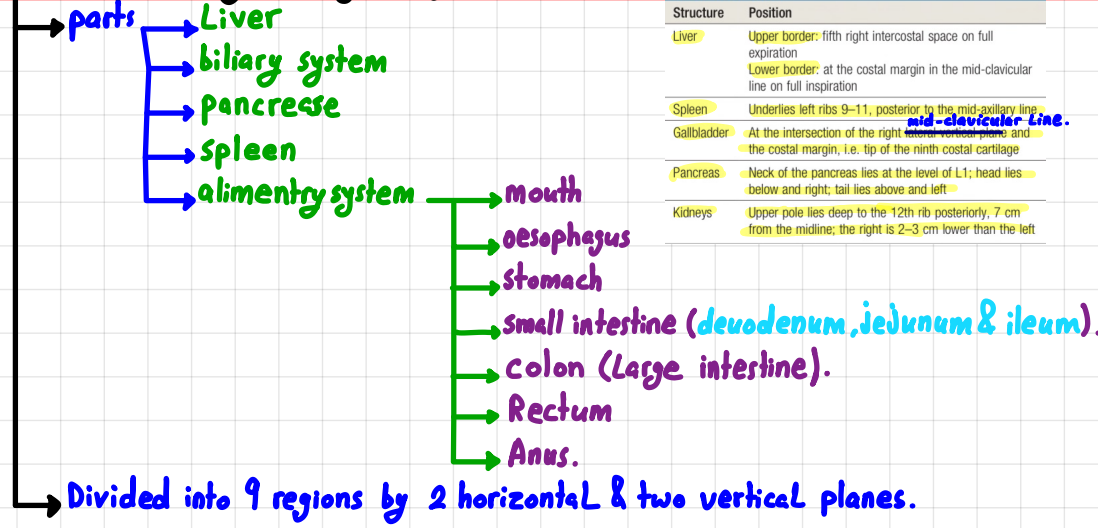 parts
Liver
biliary system
pancrease
spleen
alimentry system
mouth
oesophagus
stomach
small intestine (deuodenum, jejunum & ileum).
colon (Large intestine).
Rectum
Anus.
Divided into 9 regions by 2 horizontal & two vertical planes.
Structure Position
Liver Upper border: fifth right intercostal space on full
expiration
Lower border: at the costal margin in the mid-clavicular
line on full inspiration
Spleen Underlies left ribs 9–11, posterior to the mid-axillary line
mid-clavicular Line.
Gallbladder At the intersection of the right lateral vertical plane and
the costal margin, i.e. tip of the ninth costal cartilage
Pancreas Neck of the pancreas lies at the level of L1; head lies
below and right; tail lies above and left
Kidneys Upper pole lies deep to the 12th rib posteriorly, 7 cm
from the midline; the right is 2–3 cm lower than the left